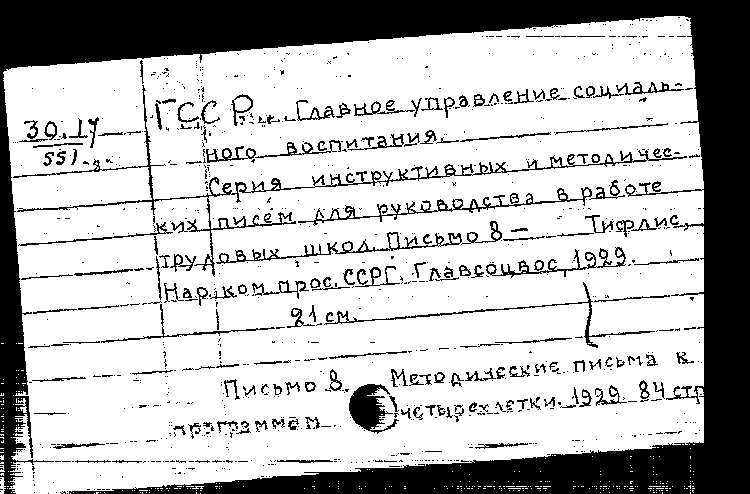 30.17
551-8.
ГССР. Главное управление социаль-
ного воспитания.
Серия инструктивных и методичес-
ких писем для руководства в работе
трудовых школ. Письмо 8 — Тифлис,
Нар.ком.прос. ССРГ. Главсоцвос, 1929.
21 см.
Письмо 8. Методические письма к
программам четырехлетки. 1929. 84 стр